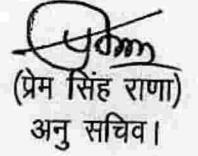 (प्रेम सिंह राणा)
अनु सचिव।